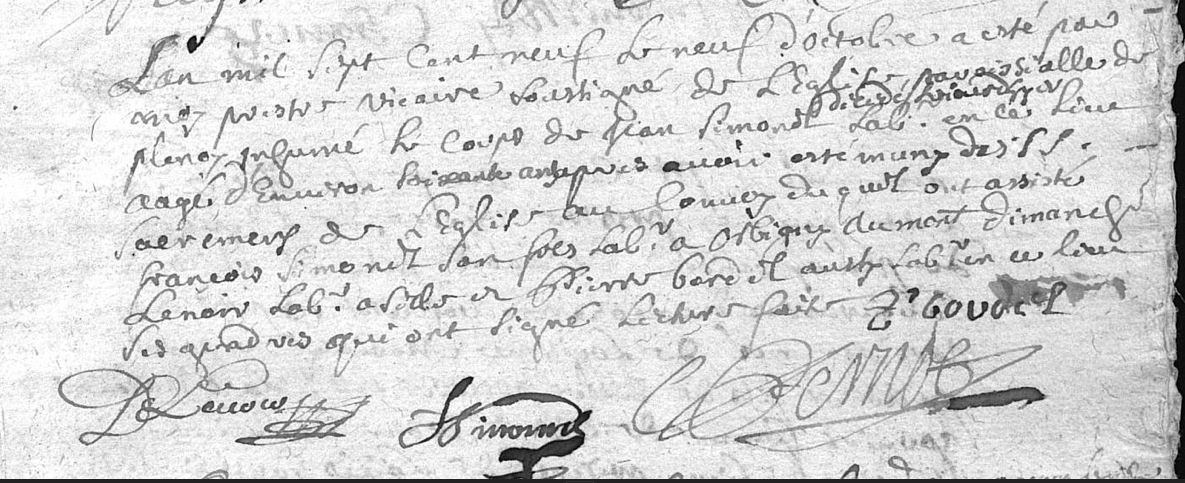 L'an mil sept cent neuf le neuf d'octobre a esté par
moy prestre vicaire soussigné de L'Eglise paroissialle de
inhumé le corps de Jean Simonet Lab. en ce lieu
aagé d'Environ soixante ans apres avoir esté muny des SS.
sacremens de L'Eglise au convoy duquel ont assisté
francois Simonet son fils Lab.r a Orbigny au mont Dimanche
Lenoir Lab.r a et Pierre bordet aussy Lab.r en ce lieu
ses qui ont signé lecture faite
D Lenoir
Simonet